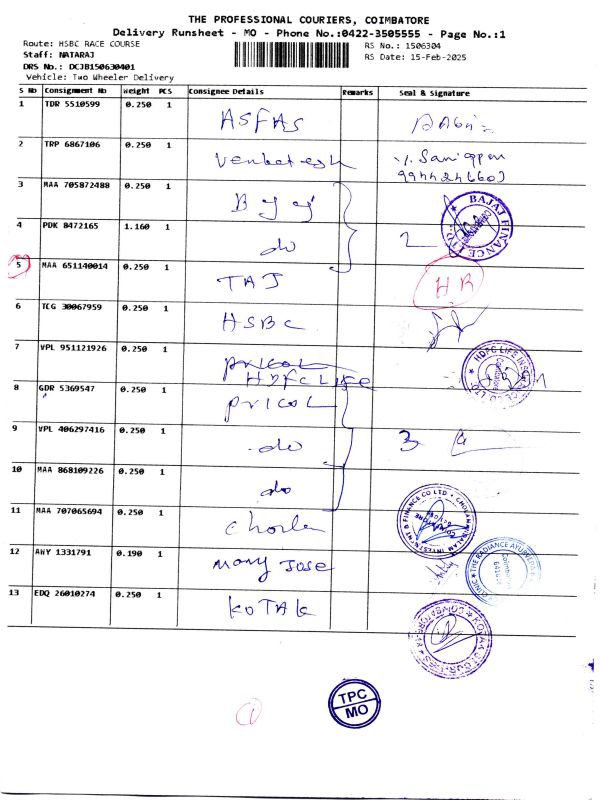 THE PROFESSIONAL COURIERS, COIMBATORE
Delivery Runsheet - MO - Phone No.:0422-3505555 - Page No.:1
Route: HSBC RACE COURSE RS No.: 1506304
Staff: NATARAJ RS Date: 15-Feb-2025
DRS No.: DCJB150630401
Vehicle: Two Wheeler Delivery
S No Consignment No Weight PCS Consignee Details Remarks Seal & Signature
1 TDR 5510599 0.250 1 ASFAS
2 TRP 6867106 0.250 1 Venkatesh
9944424660
3 MAA 705872488 0.250 1
BAJAJ FINANCE LTD.
4 PDK 8472165 1.160 1 do 2
5 MAA 651140014 0.250 1 TAJ HR
6 TCG 30067959 0.250 1 HSBC
7 VPL 951121926 0.250 1 pricol
HDFC LIFE
8 GDR 5369547 0.250 1 pricol
9 VPL 406297416 0.250 1 do 3
10 MAA 868109226 0.250 1 do
11 MAA 707065694 0.250 1 Chola
12 AWY 1331791 0.190 1 Mary Jose
THE RADIANCE AYURVEDIC CLINIC
13 EDQ 26010274 0.250 1 KOTAK
TPC
MO
1